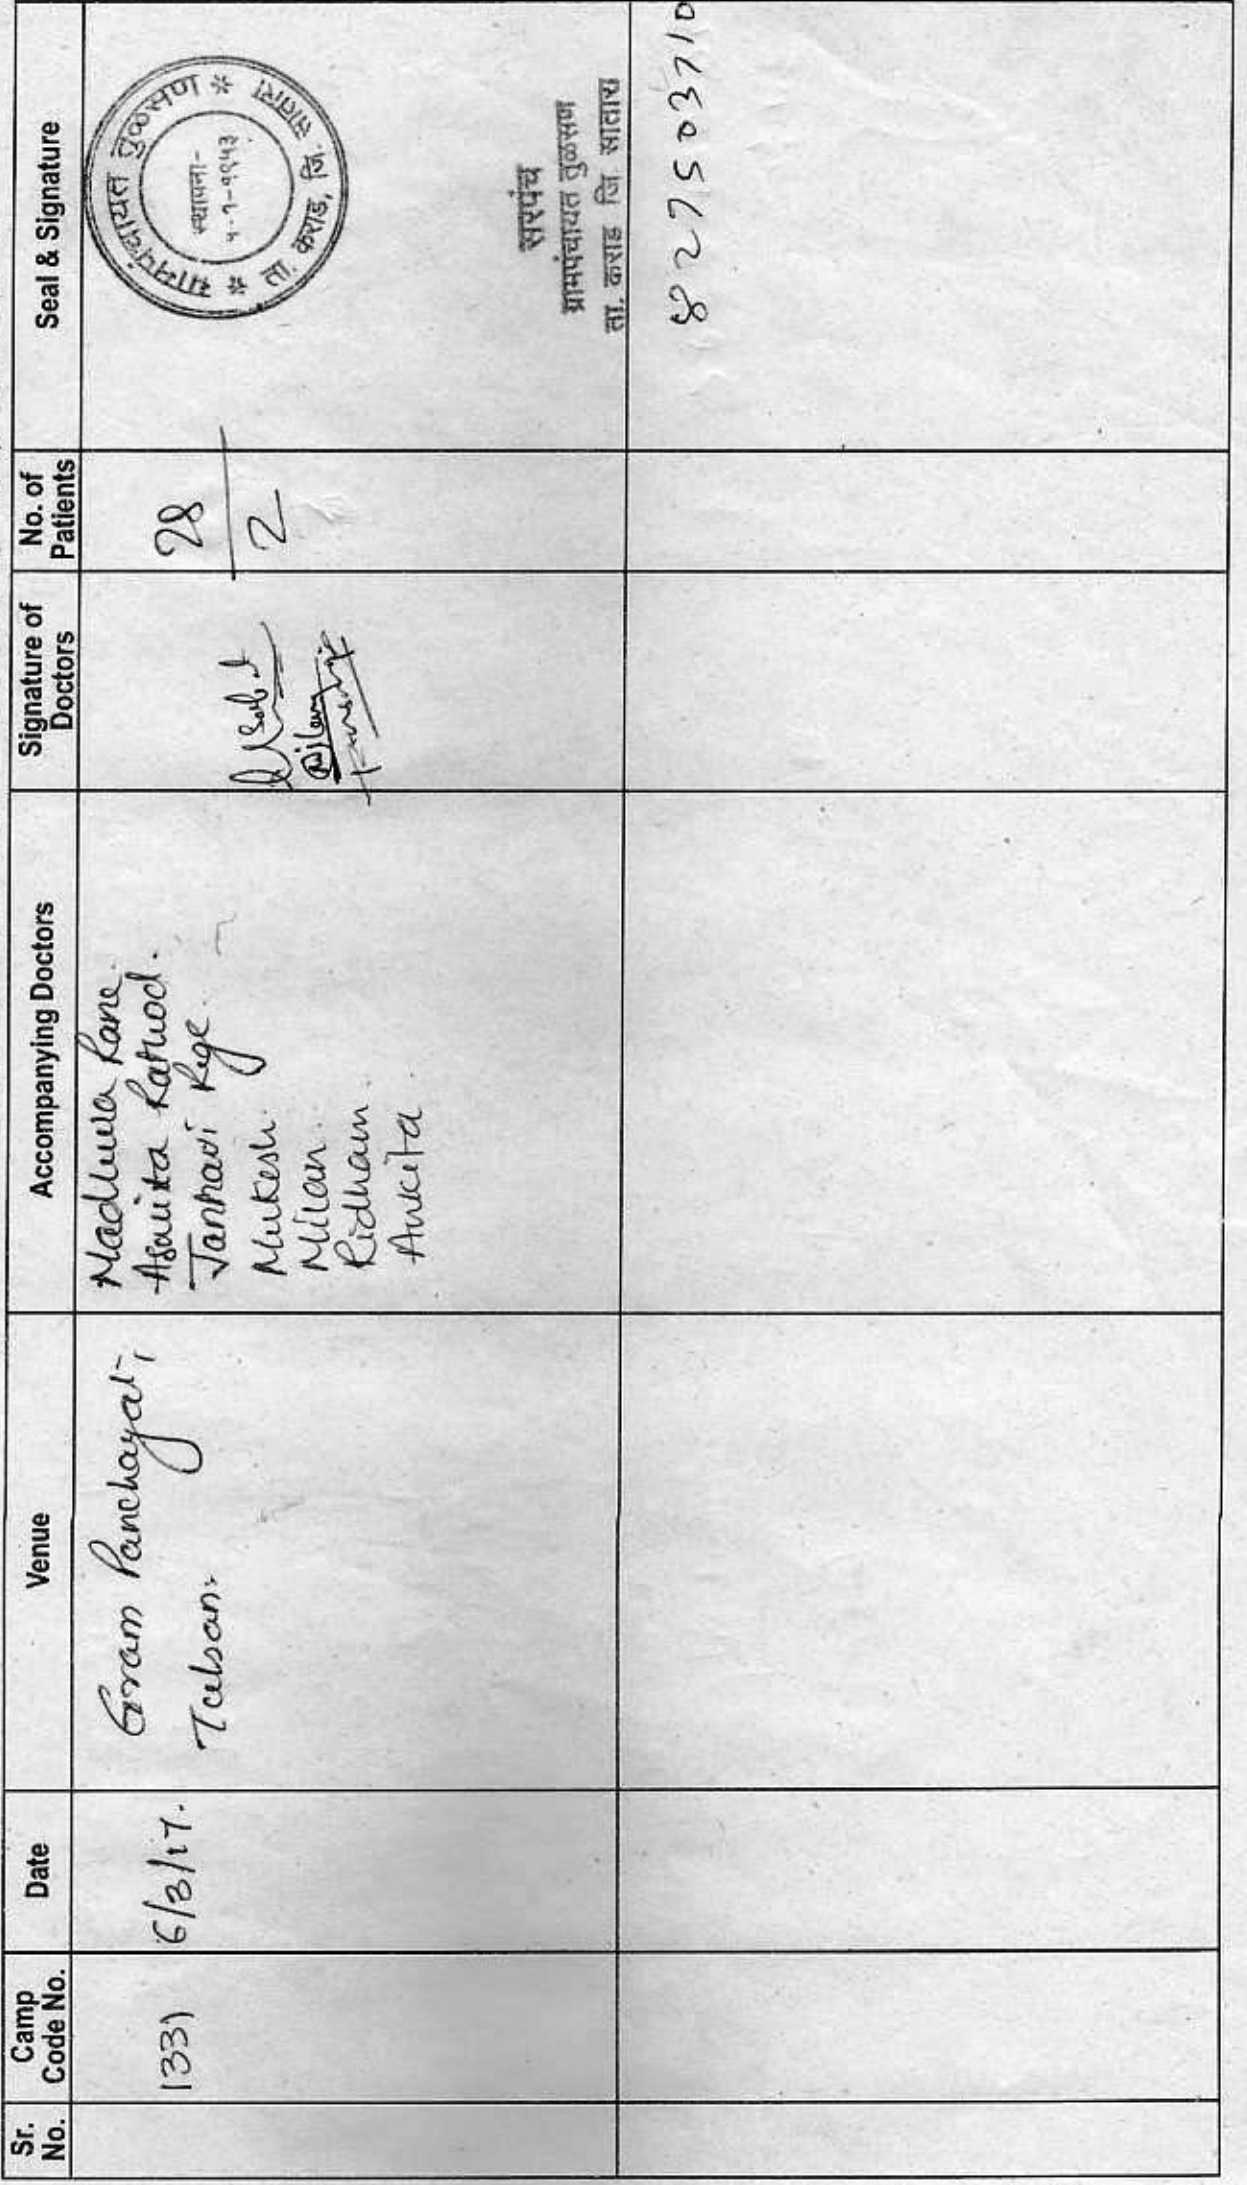 Sr. No.
Camp Code No.
Date
Venue
Accompanying Doctors
Signature of Doctors
No. of Patients
Seal & Signature
1331
6/3/17.
Gram Panchayat,
Tulsan.
Madhura Rane.
Asmita Rathod.
Janhavi Rege.
Mukesh.
Milan.
Ridham.
Ankita
28
2
ग्रामपंचायत तुळसण
ता. कराड, जि. सातारा
स्थापना-
सरपंच
ग्रामपंचायत तुळसण
ता. कराड जि सातारा
827503710